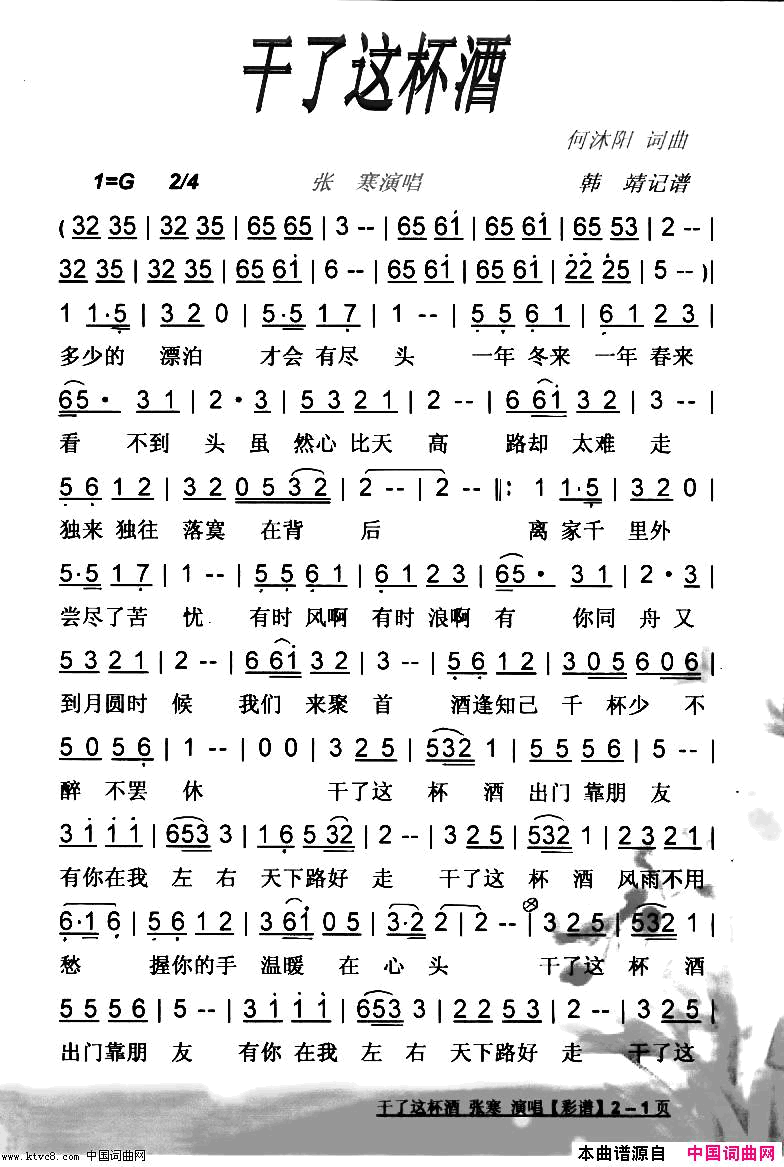 干了这杯酒
何沐阳 词曲
1=G 2/4 张 寒演唱 韩 靖记谱
( 32 35 | 32 35 | 65 65 | 65 61 | 3 -- | 65 61 | 65 61 | 65 53 | 2 -- |
32 35 | 32 35 | 65 65 | 65 61 | 6 -- | 65 61 | 65 61 | 22 25 | 5 -- )|
1 1·5 | 3 2 0 | 5·5 1 7 | 1 -- | 5 5 6 1 | 6 1 2 3 |
多少的 漂泊 才会 有尽 头 一年 冬来 一年 春来
65· 3 1 | 2·3 | 5 3 2 1 | 2 -- | 6 61 3 2 | 3 -- |
看 不到 头 虽 然心 比天 高 路却 太难 走
5 6 1 2 | 3 2 0 5 3 2 | 2 -- | 2 -- ‖: 1 1·5 | 3 2 0 |
独来 独往 落寞 在背 后 离 家千 里外
5·5 1 7 | 1 -- | 5 5 6 1 | 6 1 2 3 | 65· 3 1 | 2·3 |
尝尽了苦 忧 有时 风啊 有时 浪啊 有 你同 舟 又
5 3 2 1 | 2 -- | 6 61 3 2 | 3 -- | 5 6 1 2 | 3 0 5 6 0 6 |
到月圆时 候 我们 来聚 首 酒逢知己 千 杯少 不
5 0 5 6 | 1 -- | 0 0 | 3 2 5 | 532 1 | 5 5 5 6 | 5 -- |
醉 不罢 休 干了这 杯 酒 出门 靠朋 友
3 1 1 1 | 653 3 | 1 6 5 32 | 2 -- | 3 2 5 | 532 1 | 2 3 2 1 |
有你在我 左 右 天下路好 走 干了这 杯 酒 风雨不用
6·1 6 | 5 6 1 2 | 3 61 0 5 | 3·2 2 | 2 -- | 3 2 5 | 532 1 |
愁 握你的手 温暖 在 心 头 干了这 杯 酒
5 5 5 6 | 5 -- | 3 1 1 1 | 653 3 | 2 2 5 3 | 2 -- | 3 2 5 |
出门靠朋 友 有你 在我 左 右 天下路好 走 干了这
干了这杯酒 张寒 演唱【彩谱】2－1页
www.ktvc8.com 中国词曲网
本曲谱源自 中国词曲网